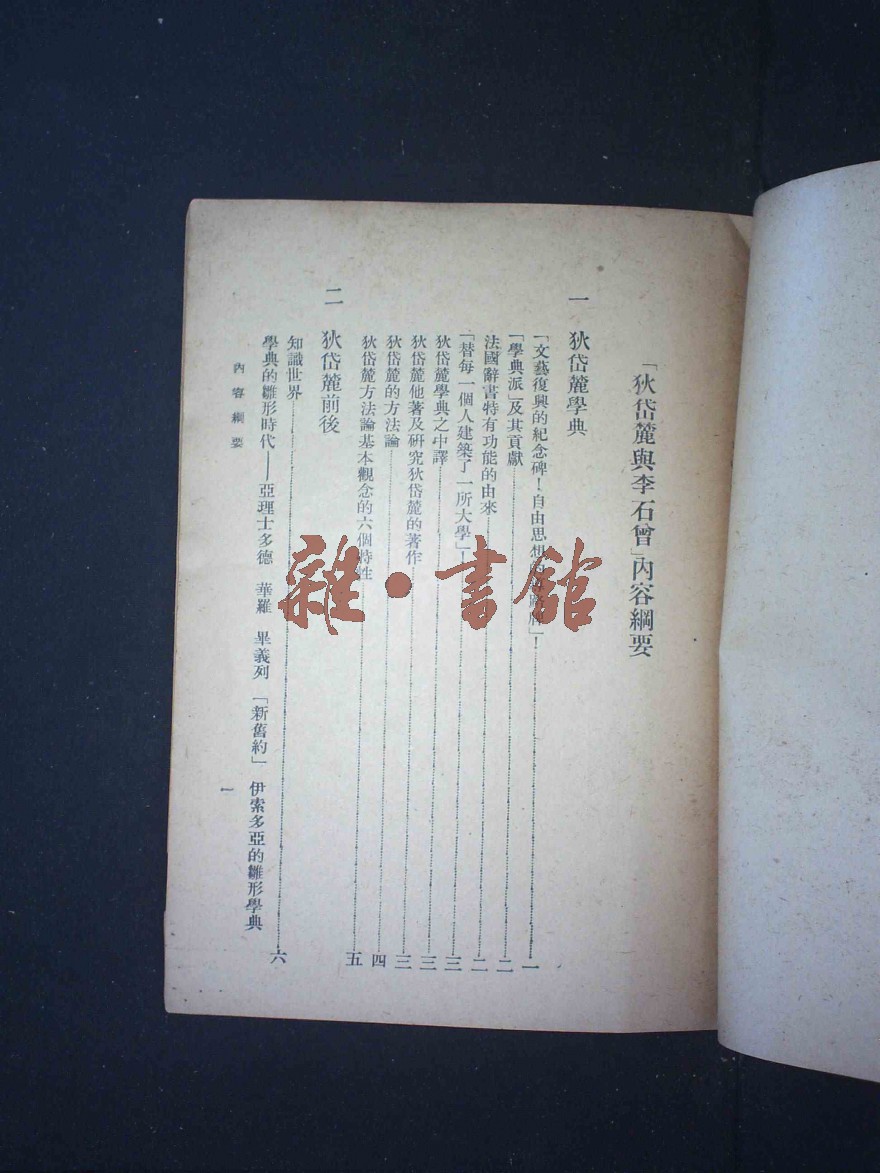 「狄岱麓與李石曾」內容綱要
一 狄岱麓學典
「文藝復興的紀念碑！自由思想 」！一
「學典派」及其貢獻 二
法國辭書特有功能的由來 二
「替每一個人建築了一所大學」 三
狄岱麓學典之中譯 三
狄岱麓他著及研究狄岱麓的著作 三
狄岱麓的方法論 四
狄岱麓方法論基本觀念的六個特性 五
二 狄岱麓前後
知識世界 六
學典的雛形時代——亞理士多德 華羅 畢義列 「新舊約」 伊索多亞的雛形學典
內容綱要
一
雜·書館